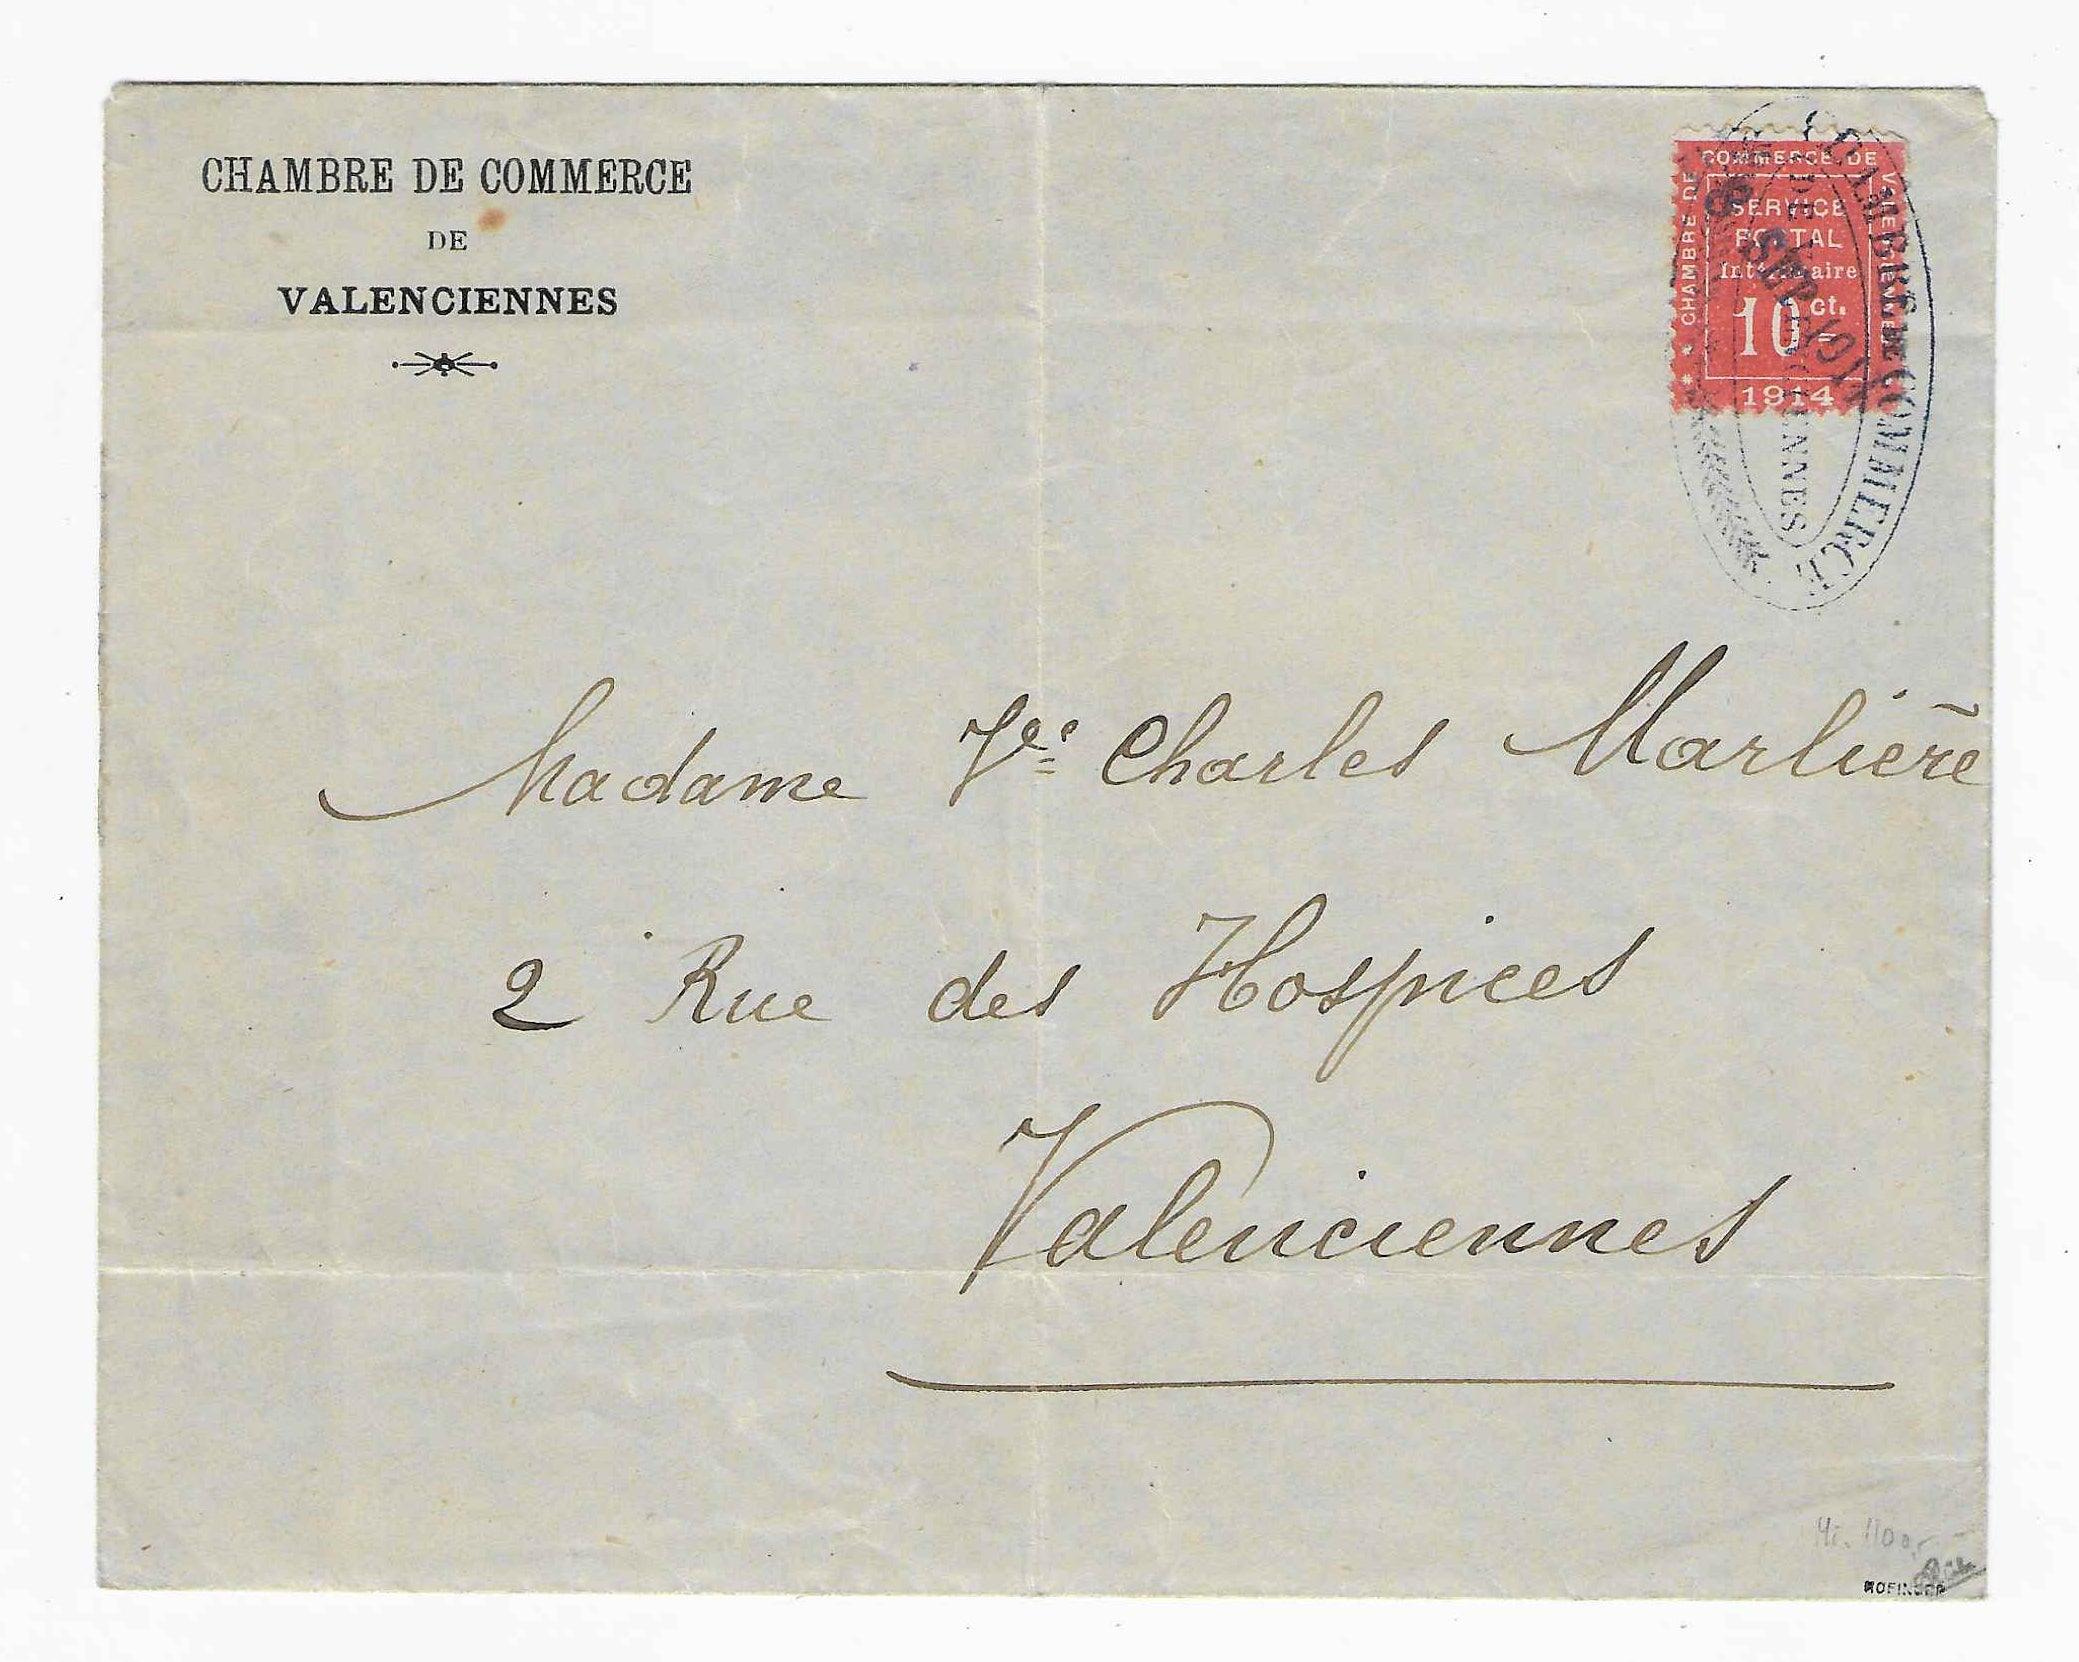 CHAMBRE DE COMMERCE
DE
VALENCIENNES
COMMERCE DE
CHAMBRE DE
VALENCIENNES
SERVICE
POSTAL
Intérimaire
10 ct.
1914
CHAMBRE DE COMMERCE
DE VALENCIENNES
SEP 1914
Madame Vve Charles Marlière
2 Rue des Hospices
Valenciennes
Mi. 1100,-